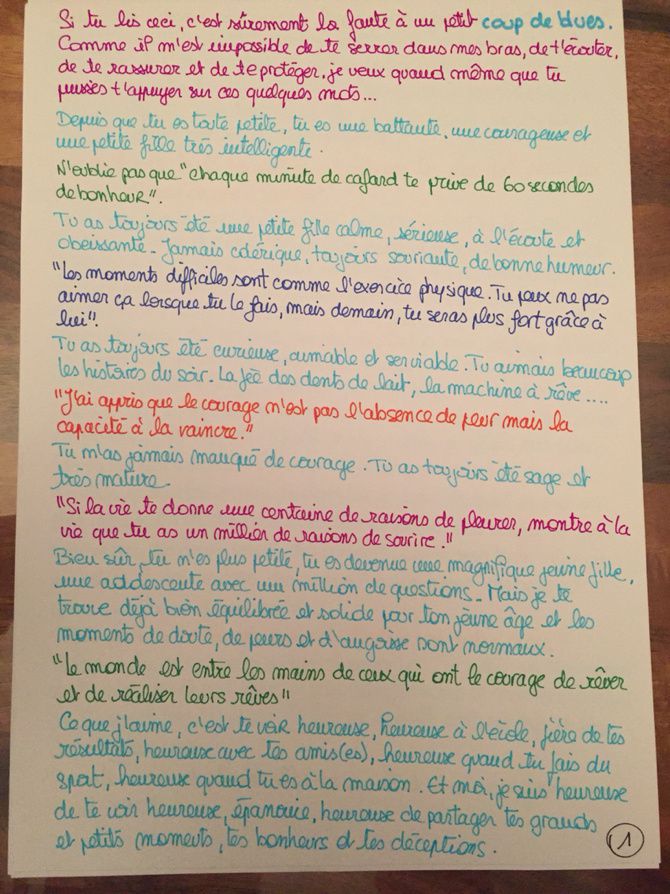 Si tu lis ceci, c'est sûrement la faute à un petit coup de blues.
Comme il m'est impossible de te serrer dans mes bras, de t'écouter,
de te rassurer et de te protéger, je veux quand même que tu
puisses t'appuyer sur ces quelques mots...
Depuis que tu es toute petite, tu es une battante, une courageuse et
une petite fille très intelligente.
N'oublie pas que "chaque minute de cafard te prive de 60 secondes
de bonheur".
Tu as toujours été une petite fille calme, sérieuse, à l'écoute et
obeissante. Jamais colérique, toujours souriante, de bonne humeur.
"Les moments difficiles sont comme l'exercice physique. Tu peux ne pas
aimer ça lorsque tu le fais, mais demain, tu seras plus fort grâce à
lui".
Tu as toujours été curieuse, aimable et serviable. Tu aimais beaucoup
les histoires du soir. La fée des dents de lait, la machine à rêve....
"J'ai appris que le courage n'est pas l'absence de peur mais la
capacité à la vaincre."
Tu n'as jamais manqué de courage. Tu as toujours été sage et
très mature.
"Si la vie te donne une centaine de raisons de pleurer, montre à la
vie que tu as un million de raisons de sourire."
Bien sûr, tu n'es plus petite, tu es devenue une magnifique jeune fille,
une addescente avec un million de questions. Mais je te
trouve déjà bien équilibrée et solide pour ton jeune âge et les
moments de doute, de peurs et d'angoisse sont normaux.
"Le monde est entre les mains de ceux qui ont le courage de rêver
et de réaliser leurs rêves"
Ce que j'aime, c'est te voir heureuse, heureuse à l'école, fière de tes
résultats, heureuse avec tes amis(es), heureuse quand tu fais du
sport, heureuse quand tu es à la maison. Et moi, je suis heureuse
de te voir heureuse, épanouie, heureuse de partager tes grands
et petits moments, tes bonheurs et tes déceptions.
1